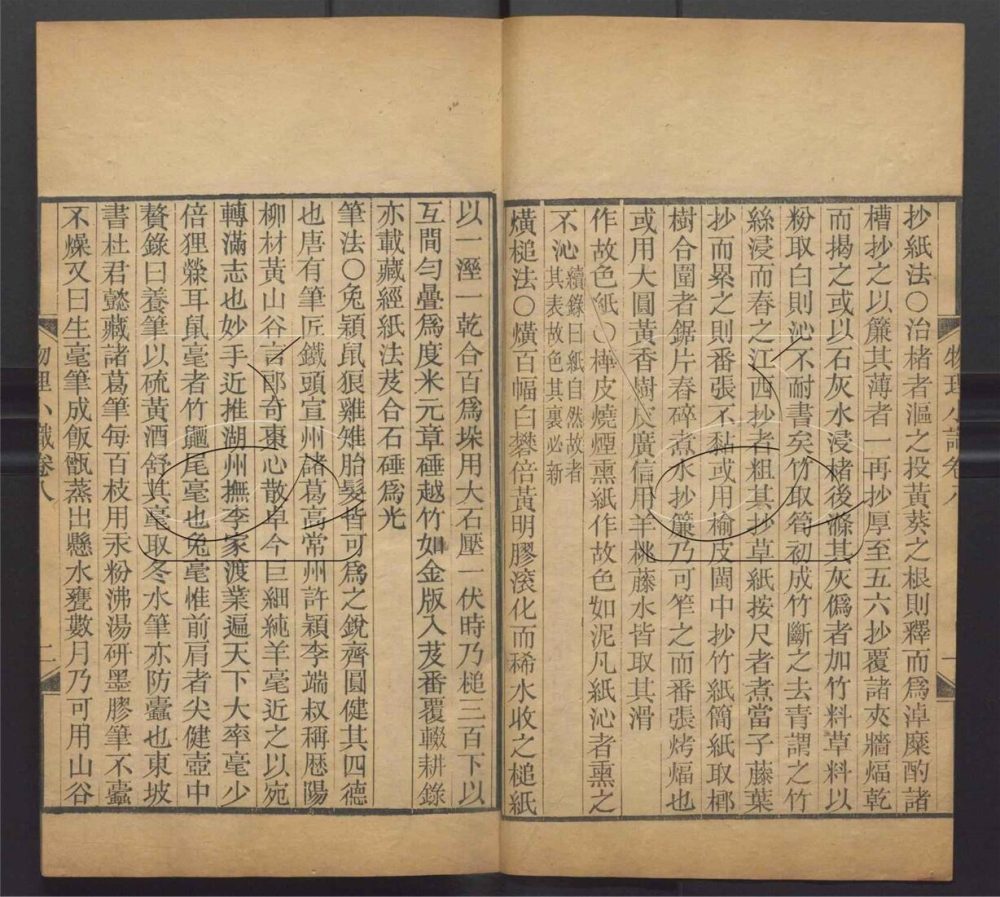 抄紙法○治楮者漚之投黃葵之根則釋而爲淖糜酌諸
槽抄之以簾其薄者一再抄厚至五六抄覆諸夾牆煏乾
而揭之或以石灰水浸楮後滌其灰僞者加竹料草料以
粉取白則沁不耐書矣竹取筍初成竹斷之去青謂之竹
絲浸而舂之江西抄者粗其抄草紙按尺者煮當子藤葉
抄而累之則番張不黏或用榆皮閩中抄竹紙簡紙取榔
樹合圍者鋸片舂碎煮水抄簾乃可笮之而番張烤煏也
或用大圓黃香樹皮廣信用羊桃藤水皆取其滑
作故色紙○樺皮燒煙熏紙作故色如泥凡紙沁者熏之
不沁續錄曰紙自然故者其表故色其裏必新
熿槌法○熿百幅白礬倍黃明膠滾化而稀水收之槌紙
物理小識卷八 一
以一溼一乾合百爲垛用大石壓一伏時乃槌三百下以
互間勻疊爲度米元章硾越竹如金版入芨番覆輟耕錄
亦載藏經紙法芨合石硾爲光
筆法○兔穎鼠狼雞雉胎髮皆可爲之銳齊圓健其四德
也唐有筆匠鐵頭宣州諸葛高常州許穎李端叔稱厯陽
柳材黃山谷言郎奇棗心散卓今巨細純羊毫近之以宛
轉滿志也妙手近推湖州撫李家渡業遍天下大率毫少
倍狸䌤耳鼠毫者竹䶉尾毫也兔毫惟前肩者尖健壺中
贅錄曰養筆以硫黃酒舒其毫取冬水筆亦防蠹也東坡
書杜君懿藏諸葛筆每百枝用汞粉沸湯研墨膠筆不蠹
不燥又曰生毫筆成飯甑蒸出懸水甕數月乃可用山谷
物理小識卷八 二